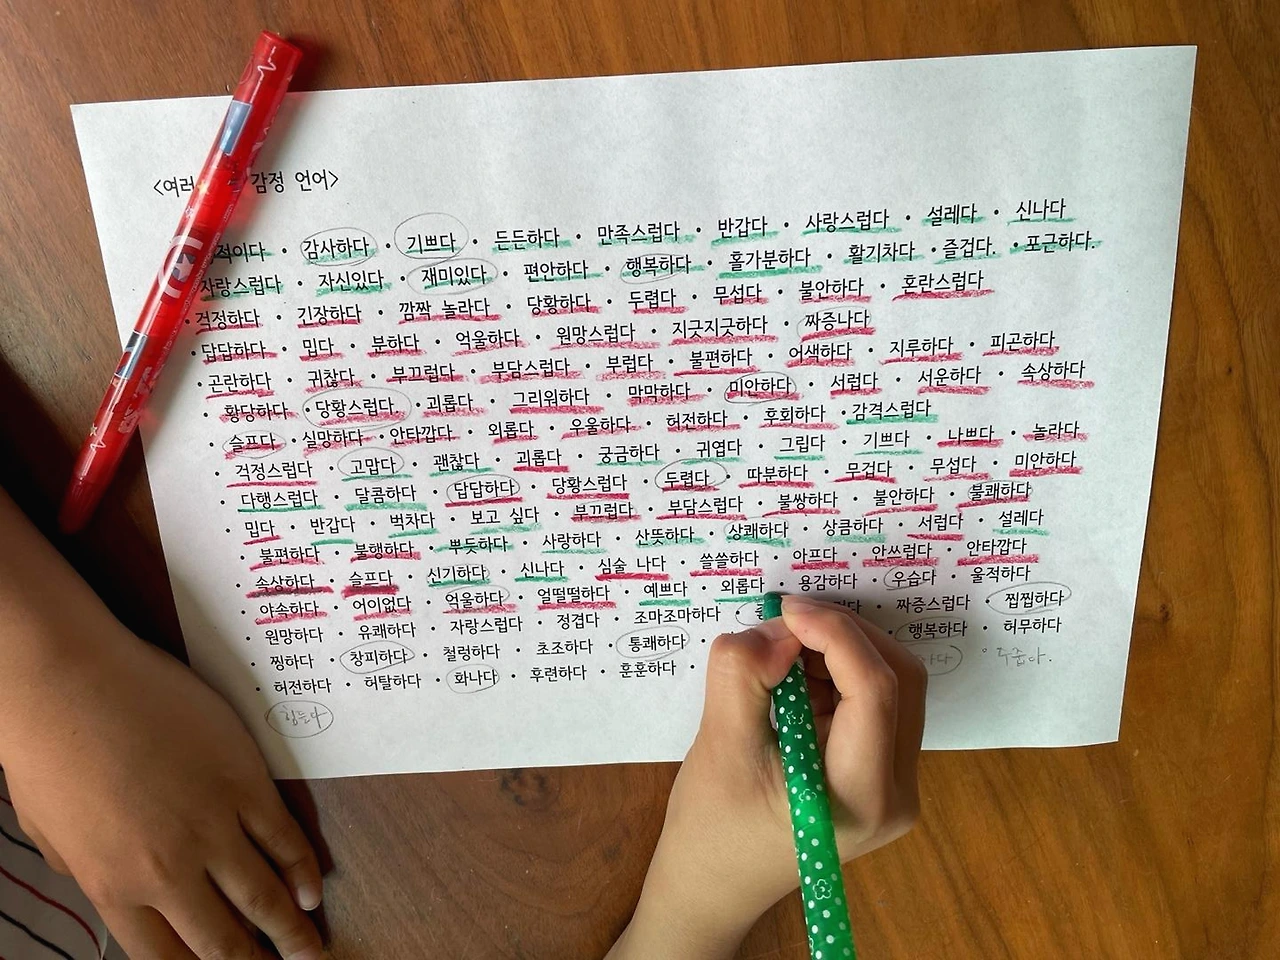 <여러 감정 언어>
감사하다 · 기쁘다 · 든든하다 · 만족스럽다 · 반갑다 · 사랑스럽다 · 설레다 · 신나다
자랑스럽다 · 자신있다 · 재미있다 · 편안하다 · 행복하다 · 홀가분하다 · 활기차다 · 즐겁다. · 포근하다.
· 걱정하다 · 긴장하다 · 깜짝 놀라다 · 당황하다 · 두렵다 · 무섭다 · 불안하다 · 혼란스럽다
· 답답하다 · 밉다 · 분하다 · 억울하다 · 원망스럽다 · 지긋지긋하다 · 짜증나다
· 곤란하다 · 귀찮다 · 부끄럽다 · 부담스럽다 · 부럽다 · 불편하다 · 어색하다 · 지루하다 · 피곤하다
· 황당하다 · 당황스럽다. · 괴롭다 · 그리워하다 · 막막하다 · 미안하다 · 서럽다 · 서운하다 · 속상하다
· 슬프다 · 실망하다 · 안타깝다 · 외롭다 · 우울하다 · 허전하다 · 후회하다 · 감격스럽다
· 걱정스럽다 · 고맙다 · 괜찮다 · 괴롭다 · 궁금하다 · 귀엽다 · 그립다 · 기쁘다 · 나쁘다 · 놀라다
· 다행스럽다 · 달콤하다 · 답답하다 · 당황스럽다 · 두렵다 · 따분하다 · 무겁다 · 무섭다 · 미안하다
· 밉다 · 반갑다 · 벅차다 · 보고 싶다 · 부끄럽다 · 부담스럽다 · 불쌍하다 · 불안하다 · 불쾌하다
· 불편하다 · 불행하다 · 뿌듯하다 · 사랑하다 · 산뜻하다 · 상쾌하다 · 상큼하다 · 서럽다 · 설레다
· 속상하다 · 슬프다 · 신기하다 · 신나다 · 심술 나다 · 쓸쓸하다 · 아프다 · 안쓰럽다 · 안타깝다
· 야속하다 · 어이없다 · 억울하다 · 얼떨떨하다 · 예쁘다 · 외롭다 · 용감하다 · 우습다 · 울적하다
· 원망하다 · 유쾌하다 · 자랑스럽다 · 정겹다 · 조마조마하다 · 짜증스럽다 · 찝찝하다
· 찡하다 · 창피하다 · 철렁하다 · 초조하다 · 통쾌하다 · 행복하다 · 허무하다
· 허전하다 · 허탈하다 · 화나다 · 후련하다 · 훈훈하다 ·
힘들다